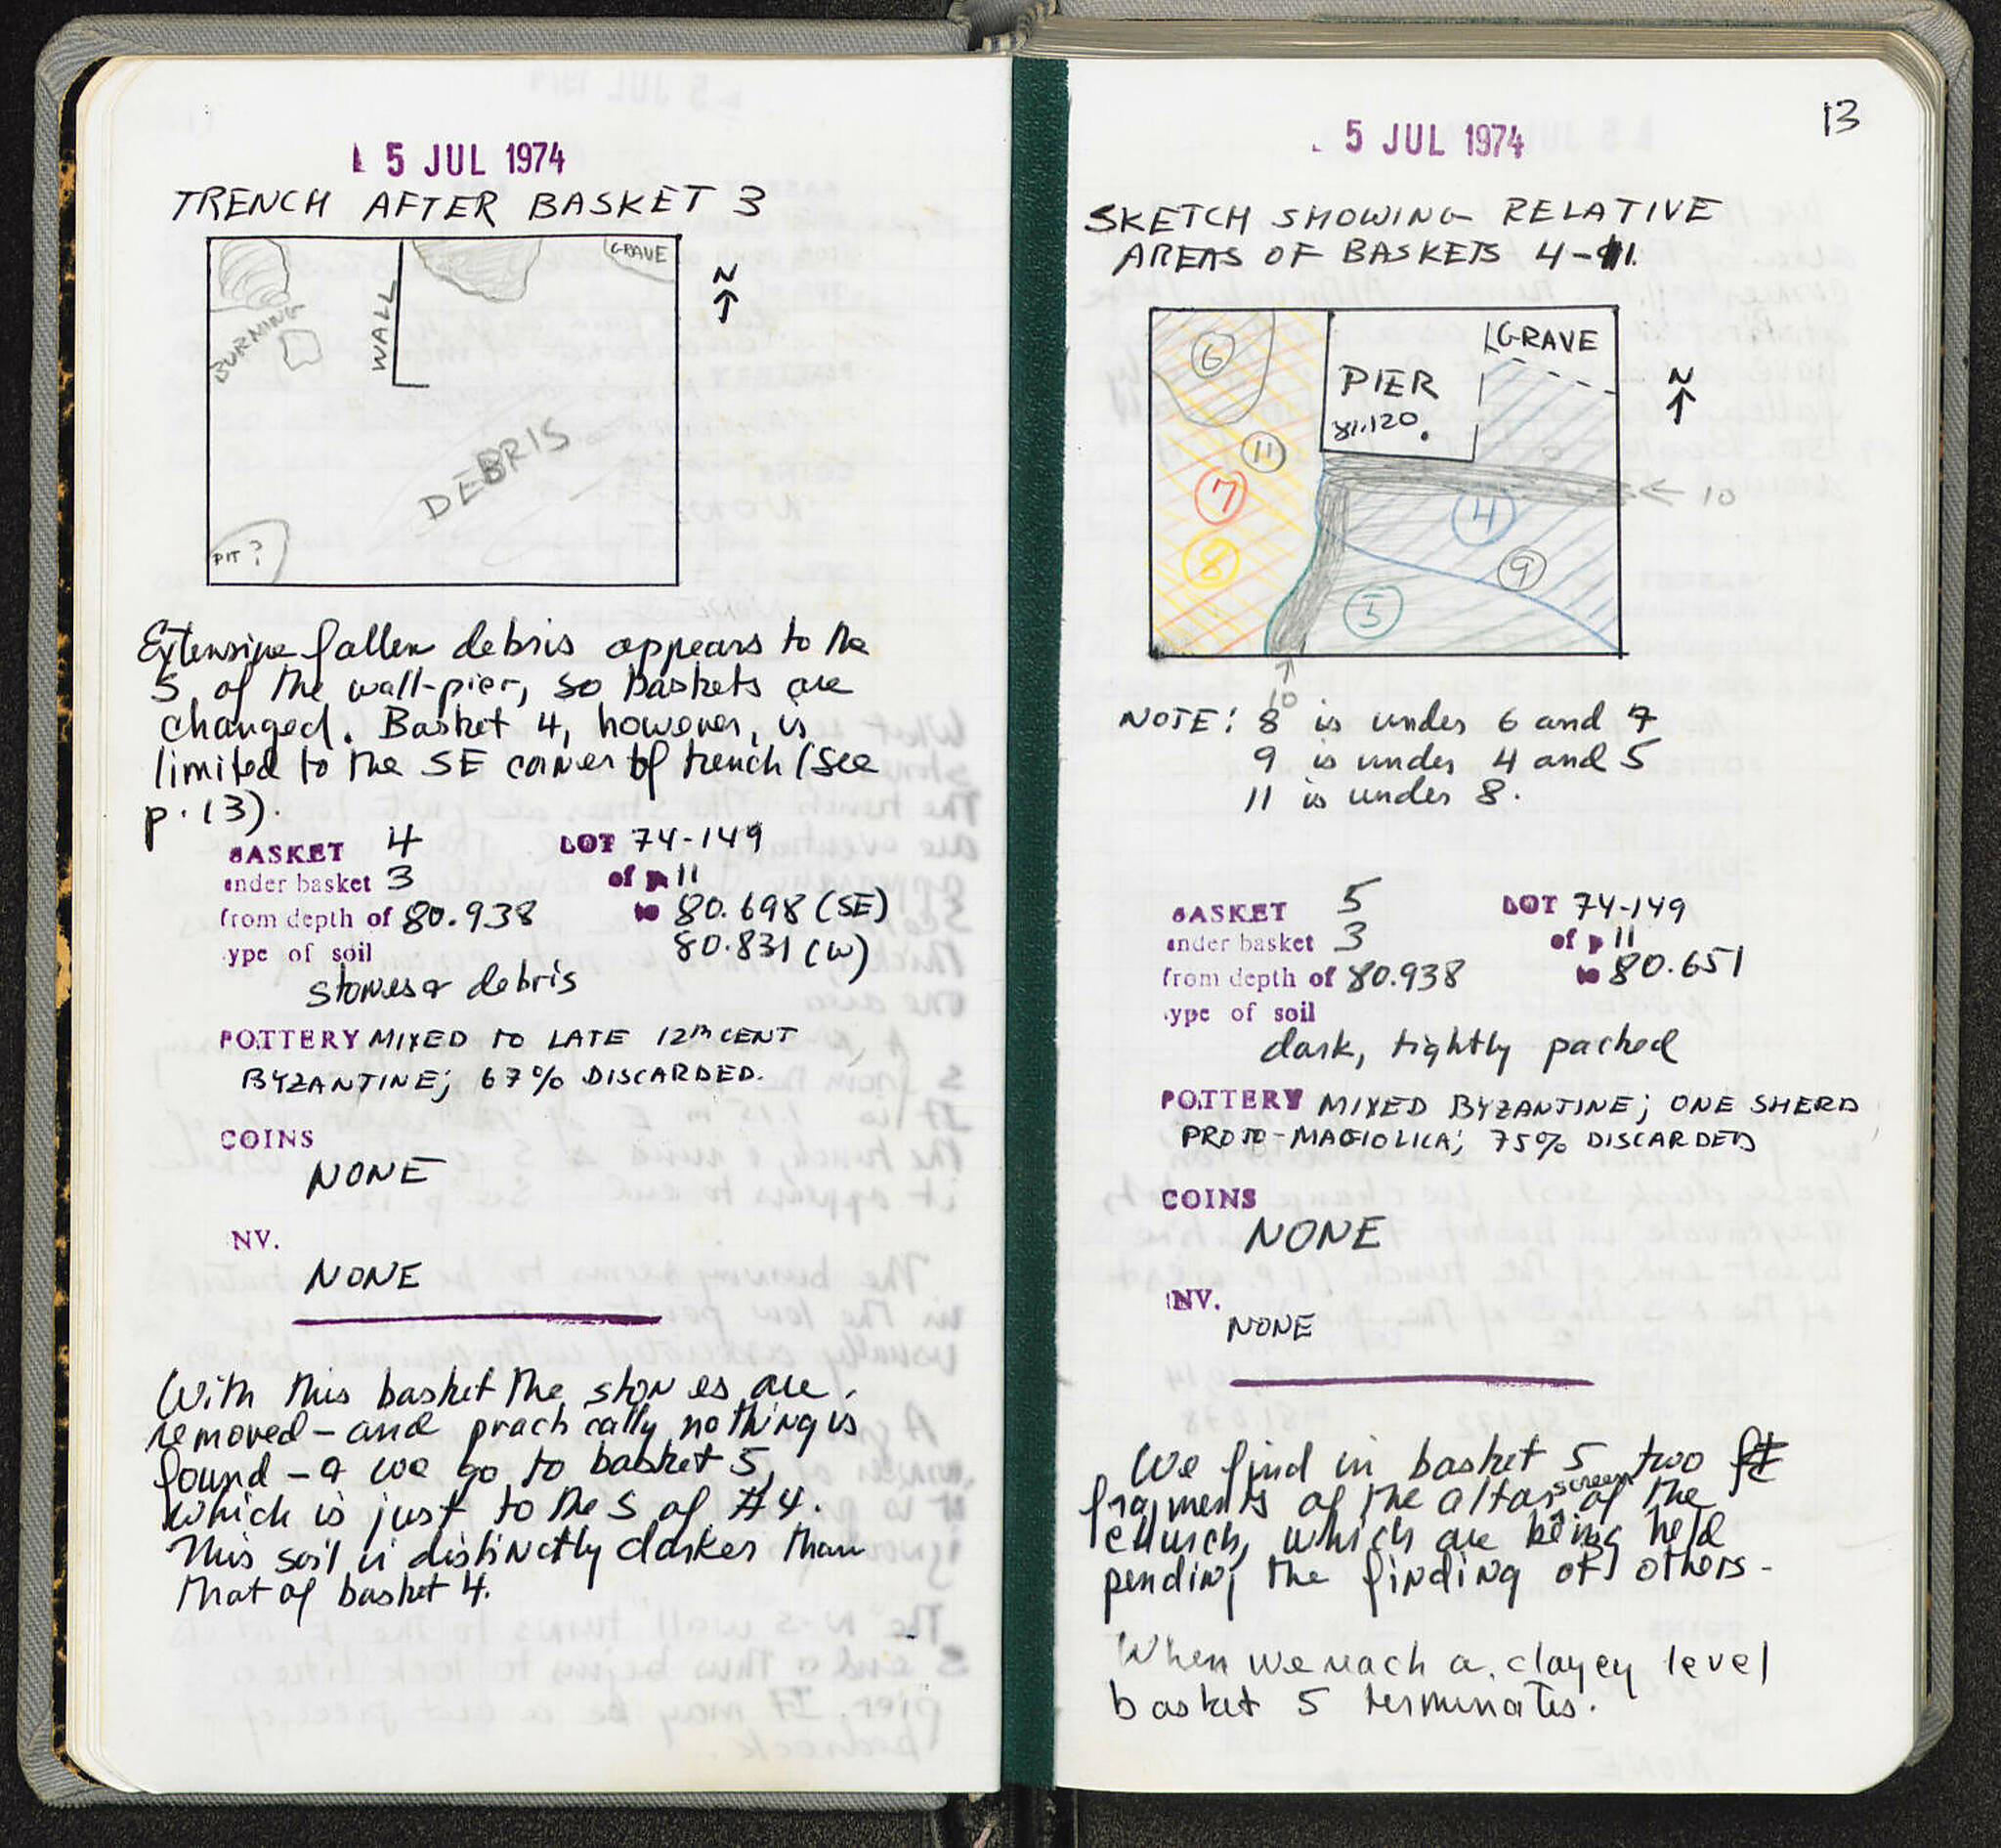 5 JUL 1974
TRENCH AFTER BASKET 3
GRAVE
N
WALL
BURNING
DEBRIS
PIT?
Extensive fallen debris appears to the
S of the wall-pier, so baskets are
changed. Basket 4, however, is
limited to the SE corner of trench (see
p. 13).
BASKET 4 LOT 74-149
under basket 3 of p 11
from depth of 80.938 to 80.698 (SE)
80.831 (W)
type of soil
stones & debris
POTTERY MIXED TO LATE 12TH CENT
BYZANTINE; 67% DISCARDED.
COINS
NONE
NV.
NONE
With this basket the stones are
removed - and practically nothing is
found - & we go to basket 5,
which is just to the S of #4.
This soil is distinctly darker than
that of basket 4.
13
5 JUL 1974
SKETCH SHOWING RELATIVE
AREAS OF BASKETS 4-11.
GRAVE
6
PIER
81.120
N
11
7
4
10
8
9
5
10
NOTE: 8 is under 6 and 7
9 is under 4 and 5
11 is under 8.
BASKET 5 LOT 74-149
under basket 3 of p 11
from depth of 80.938 to 80.651
type of soil
dark, tightly packed
POTTERY MIXED BYZANTINE; ONE SHERD
PROTO-MAGIOLICA; 75% DISCARDED
COINS
NONE
INV.
NONE
We find in basket 5 two
fragments of the altar screen of the
church, which are being held
pending the finding of others.
When we reach a clayey level
basket 5 terminates.